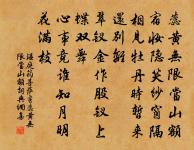 蕊黃無限當山額
宿妝隱笑紗窗隔
相見牡丹時暫來
還別離
翠釵金作股釵上
蝶雙舞
心事竟誰知月明
花滿枝
溫庭筠菩薩蠻蕊黃無
限當山額詞